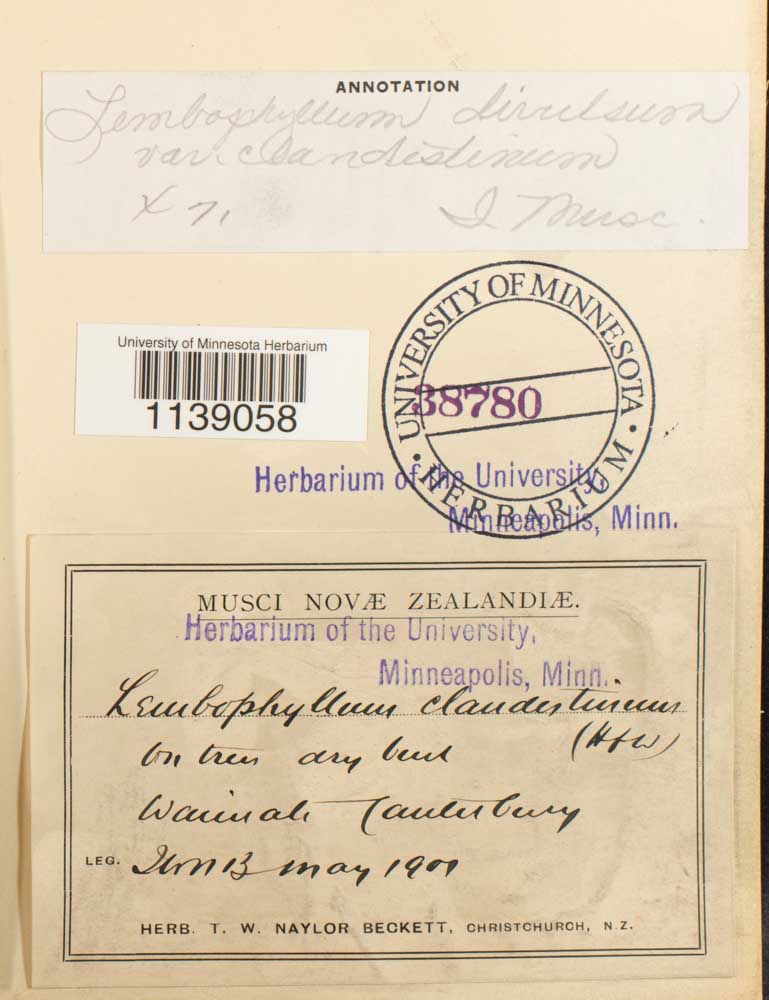 ANNOTATION
Lembophyllum divulsum
var. clandestinum
I. Musc.
University of Minnesota Herbarium
1139058
UNIVERSITY OF MINNESOTA
38780
• HERBARIUM •
Herbarium of the University,
Minneapolis, Minn.
MUSCI NOVÆ ZEALANDIÆ.
Herbarium of the University,
Minneapolis, Minn.
Lembophyllum clandestinum
On trees dry (H&W)
Canterbury
LEG. may
HERB. T. W. NAYLOR BECKETT, CHRISTCHURCH, N.Z.